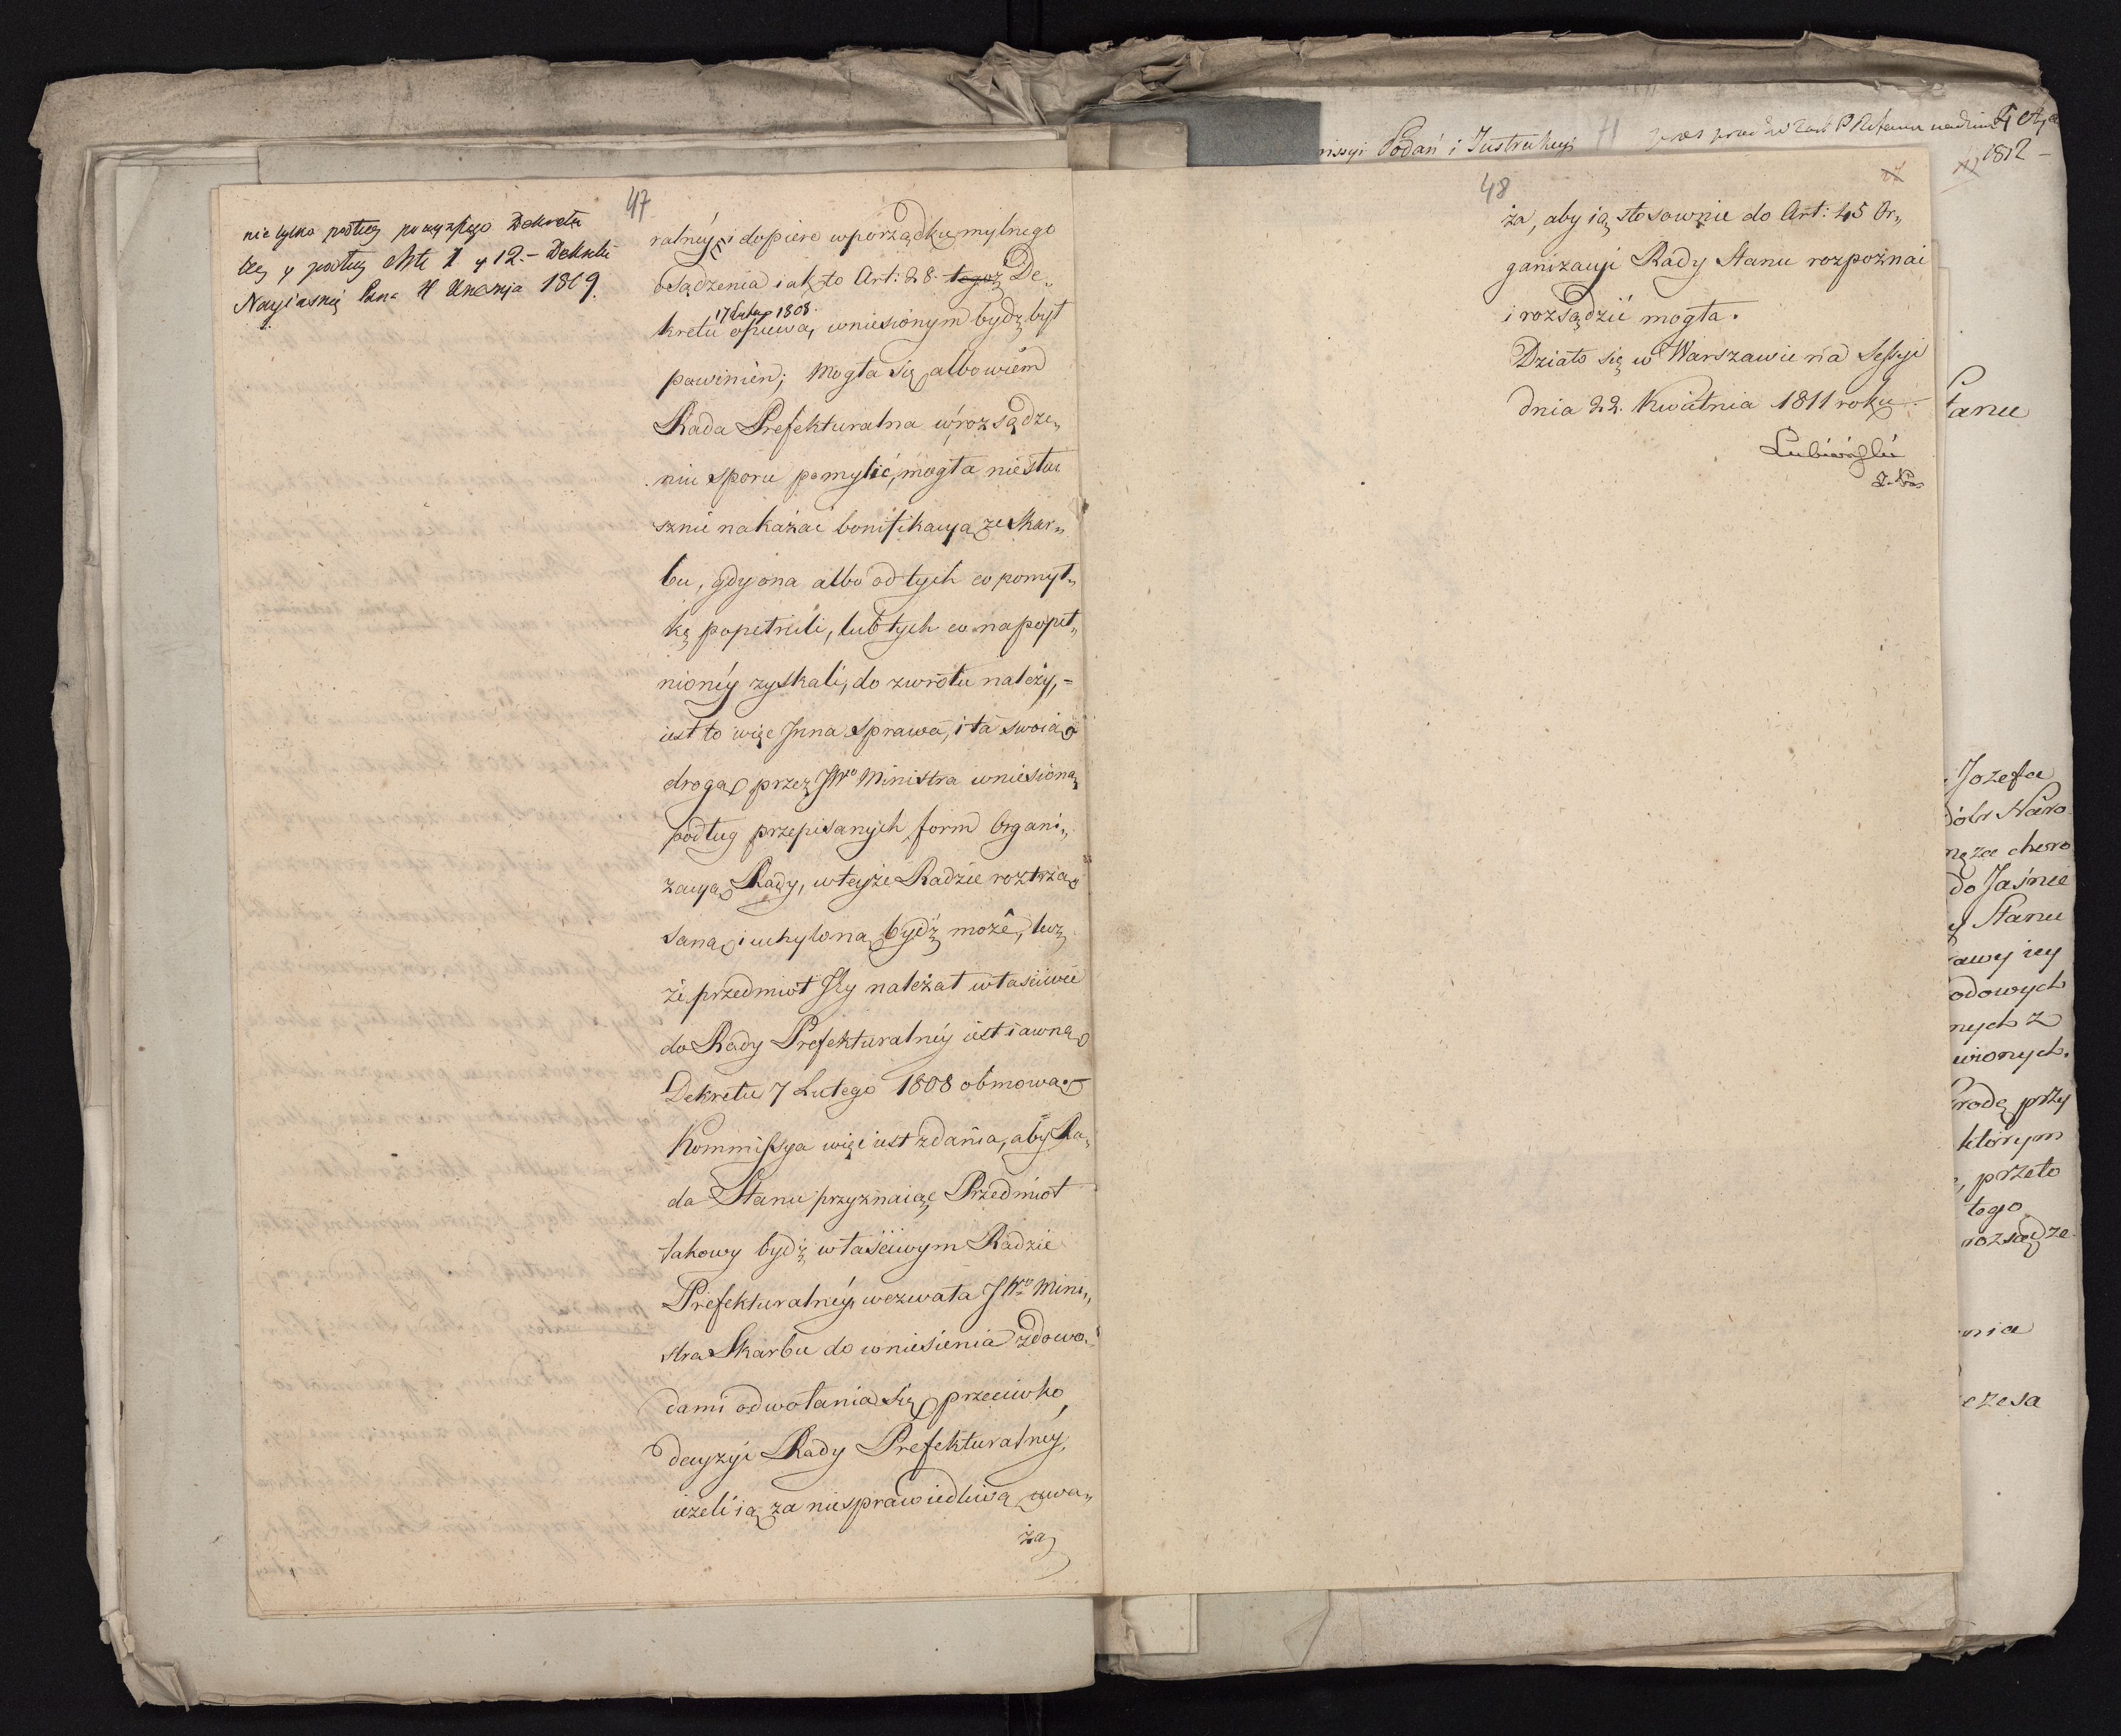 47
nie tylko podług powyższego Dekretu
lecz y podług Artu 1 y 12.- Dekretu
Nayiaśnie Pana 1809.
ralnéy, i dopiero w porządku mylnego
osądzenia iak to Art: 28. tegoż De„
17 Lutego 1808.
kretu opiewa, wniesionym bydź był
powinien; Mogła się albowiem
Rada Prefekturalna w rozsądze„
niu sporu pomylić, mogła niesłu
sznie nakazać bonifikacyą ze Skar„
bu, gdy ona albo od tych co pomył„
kę popełnili, lub tych co na popeł„
nionéy zyskali, do zwrotu należy, -
iest to więc Inna sprawa, i ta swoią
drogą przez JWo Ministra wniesioną
podług przepisanych form Organi„
zacyą Rady, w teyże Radzie roztrzą
saną i uchyloną bydź może, lecz
że przedmiot był należał właściwie
do Rady Prefekturalnéy iest iawną
Dekretu 7 Lutego 1808 obmową. -
Kommissya więc iest zdania, aby Ra„
da Stanu przyznaiąc Przedmiot
takowy bydź właściwym Radzie
Prefekturalnéy, wezwała JWo Mini„
stra Skarbu do wniesienia z dowo„
dami odwołania się przeciwko
decyzyi Rady Prefekturalnéy,
ieżeli ią za niesprawiedliwą uwa„
ża
48
ża, aby ią stosownie do Art: 45 Or„
ganizacyi Rady Stanu rozpoznać
i rozsądzić mogła.
Działo się w Warszawie na Sessyi
dnia 22. Kwietnia 1811 roku
Lubieński
missyi Podań i Instrukcyi
71
1812 -
Stanu
Jozefa
dóbr Naro
męza choro
do Jaśnie
y Stanu
rawy iey
odowych
nych z
wionych.
rodę przy
którym
, przeto
tego
rozsądze
nia
ezesa